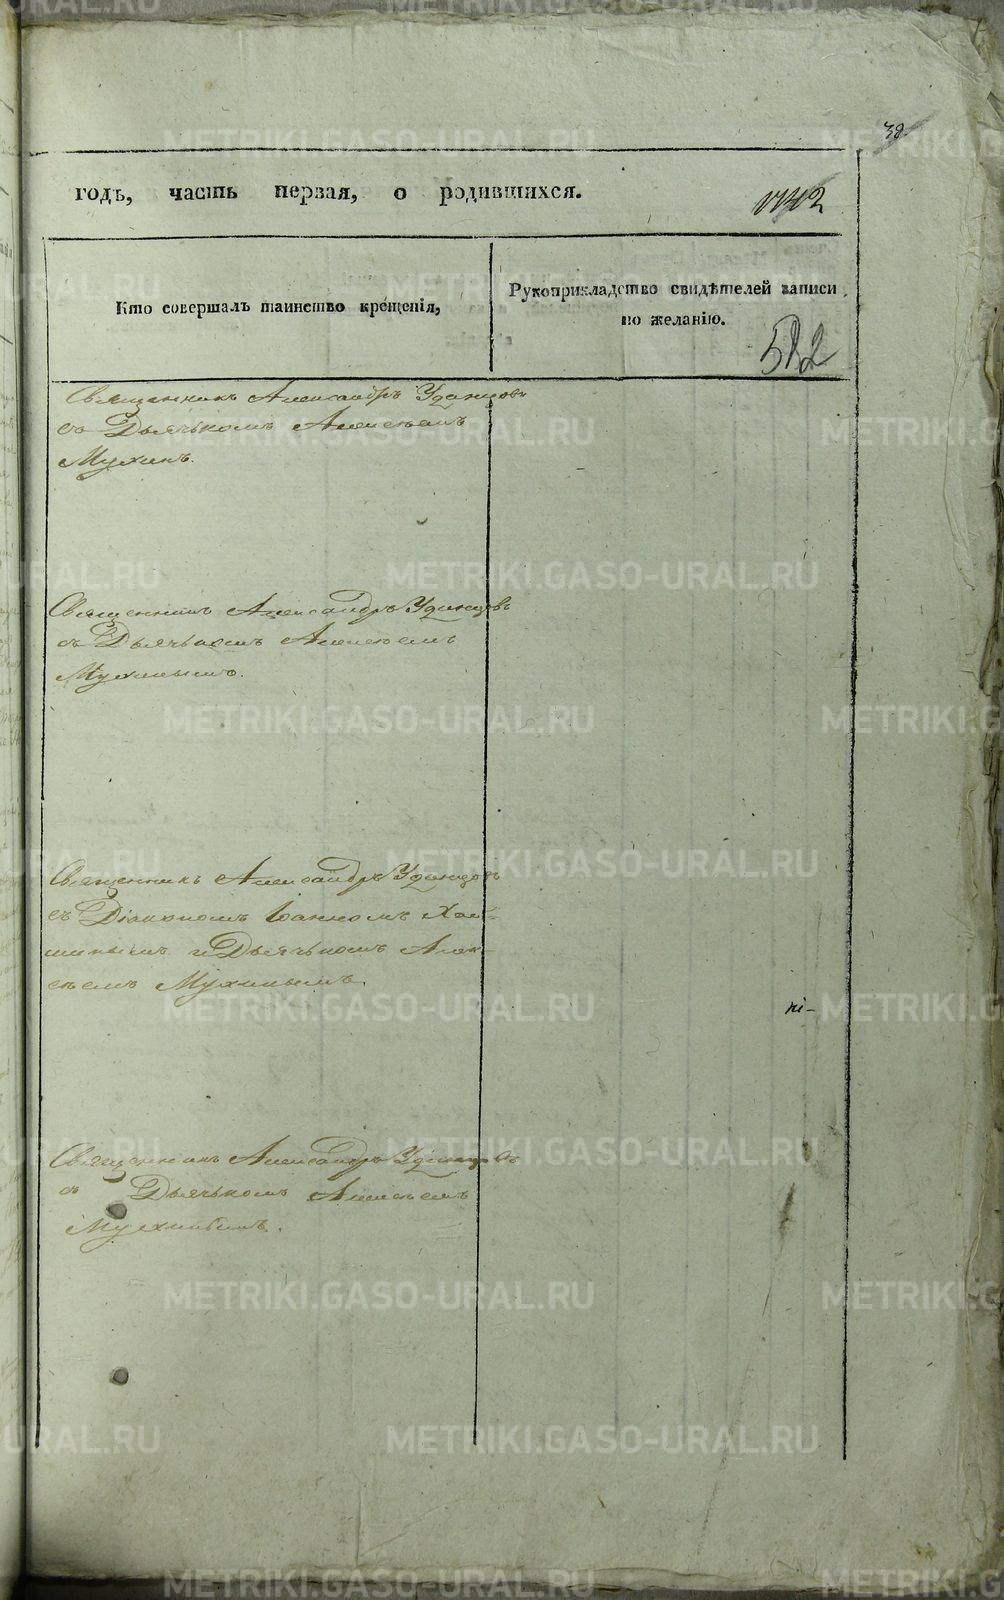 38.
годъ, часть первая, о родившихся.
Кто совершалъ таинство крещенія,
Рукоприкладство свидѣтелей записи
по желанію.
522
Священникъ Александръ Удинцовъ
съ Дьячькомъ Алексѣемъ
Мухинъ.
Священникъ Александръ Удинцовъ
съ Дьячькомъ Алексѣемъ
Мухинымъ.
Священникъ Александръ Удинцовъ
съ Діакономъ Іоанномъ
и Дьячькомъ Алек-
сѣемъ Мухинымъ.
Священникъ Александръ Удинцовъ
съ Дьячькомъ Алексѣемъ
Мухинымъ.
METRIKI.GASO-URAL.RU